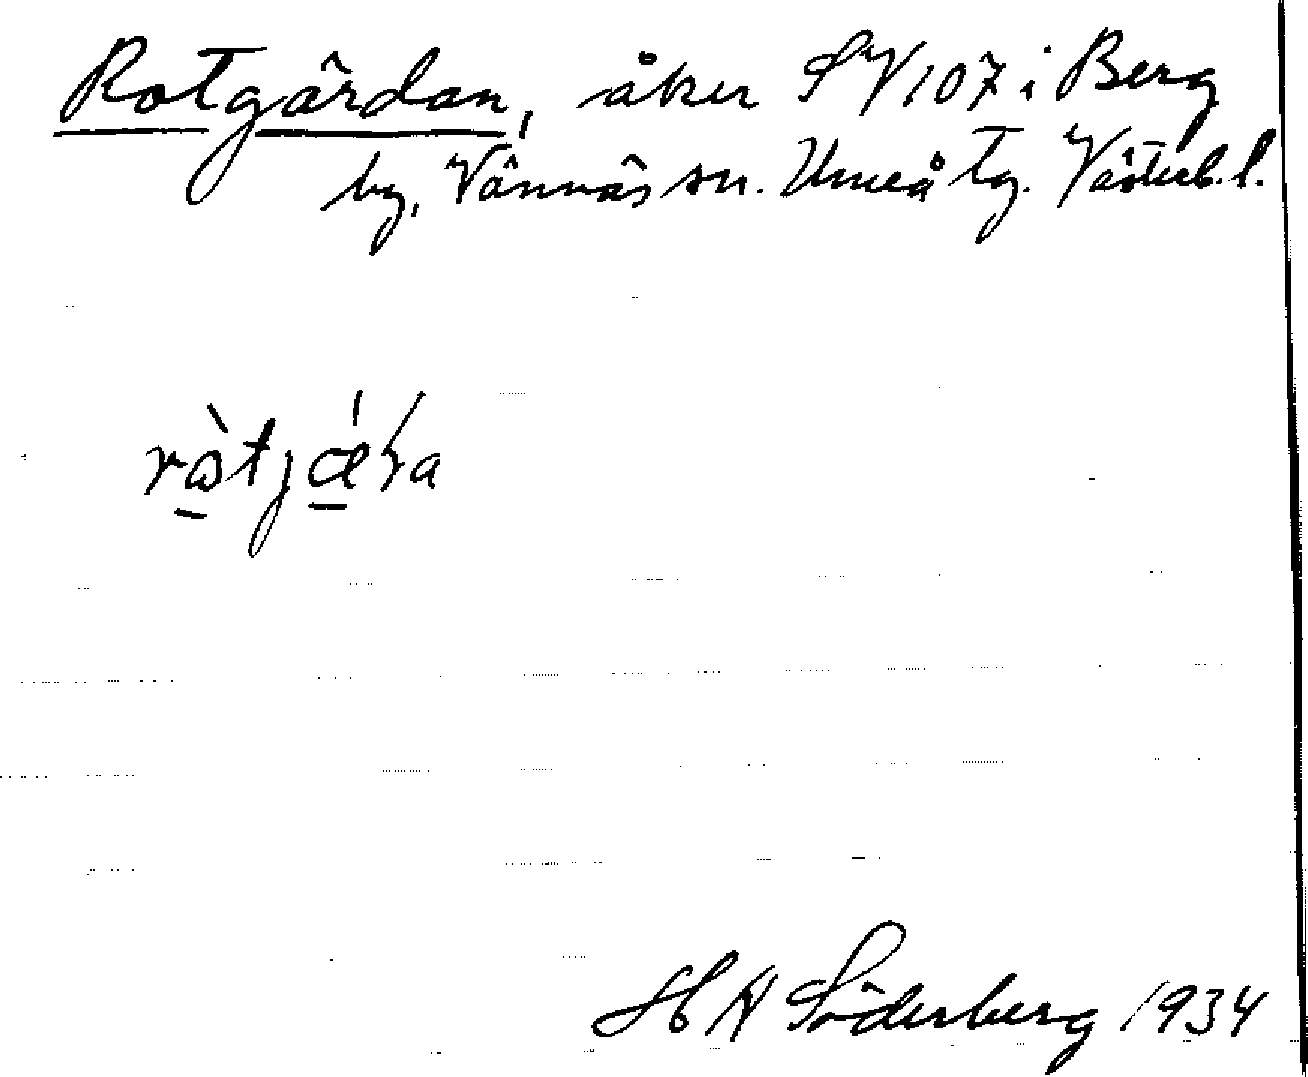 Rotgärdan, åker SV107 i Berg
by, Vännäs sn. Umeå tg. Västerb. l.
Söderberg 1934